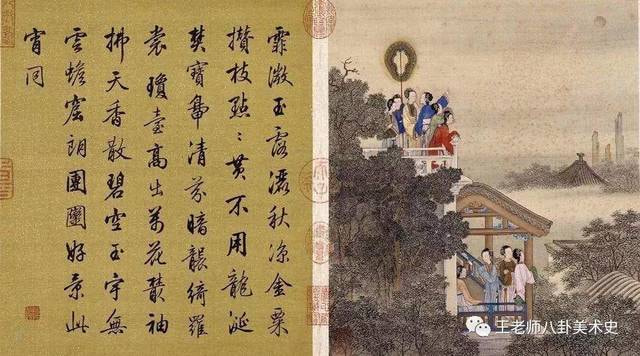 霏微玉露秋涼金粟
攢枝點〻黃不用龍涎
焚寶鼎清芬暗襲綺羅
裳瓊臺高出萬花叢袖
拂天香散碧空玉宇無
雲蟾窟朗團圞好景此
宵同
王老师八卦美术史